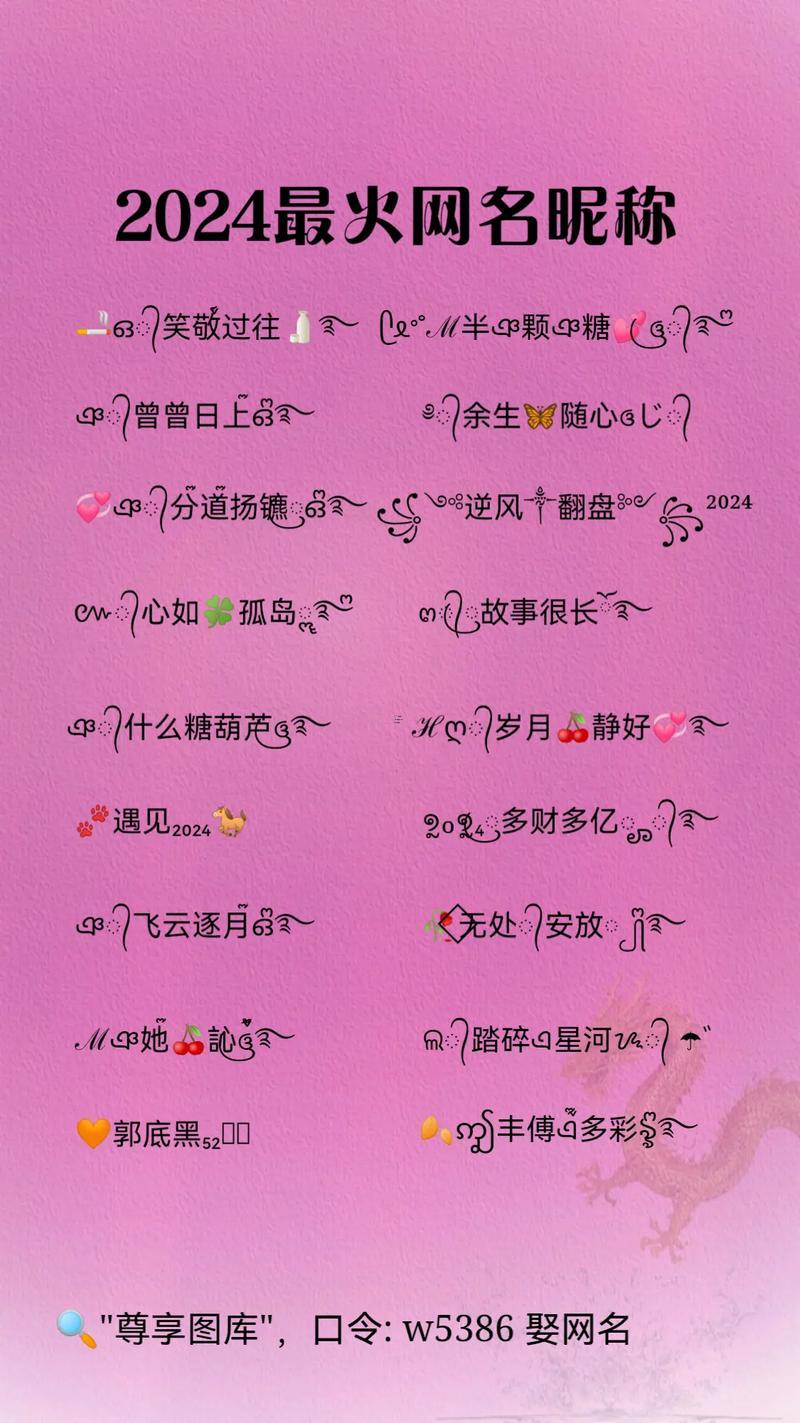 2024最火网名昵称
🚬ꦿ᭄笑敬过往🍼࿐ ᥫ᭡ℳ半ঞ颗ঞ糖💕ঔৣ᭄࿐ღ
ঞ᭄曾曾日上ཉྀ࿐ ༄᭄余生🦋随心ঔじ᭄
💞ঞ᭄分道扬镳ཉྀ࿐ ꧁༺逆风༒翻盘༻꧂²⁰²⁴
൭᭄心如🍀孤岛࿐ღ ო᭄故事很长࿐
ঞ᭄什么糖葫芭ঔ࿐ ℋღ᭄岁月🍒静好💞࿐
🐾遇见₂₀₂₄🐎 ᥒo𝟚₄多财多亿᭄࿐
ঞ᭄飞云逐月ཉྀ࿐ 🥀无处᭄安放࿐
ℳঞ她🍒訫ঔৣ࿐ ᭄踏碎এ星河᭄ ☂
🧡郭底黑₅₂ ᭄丰傅এ多彩࿐
🔍"尊享图库"，口令: w5386 娶网名